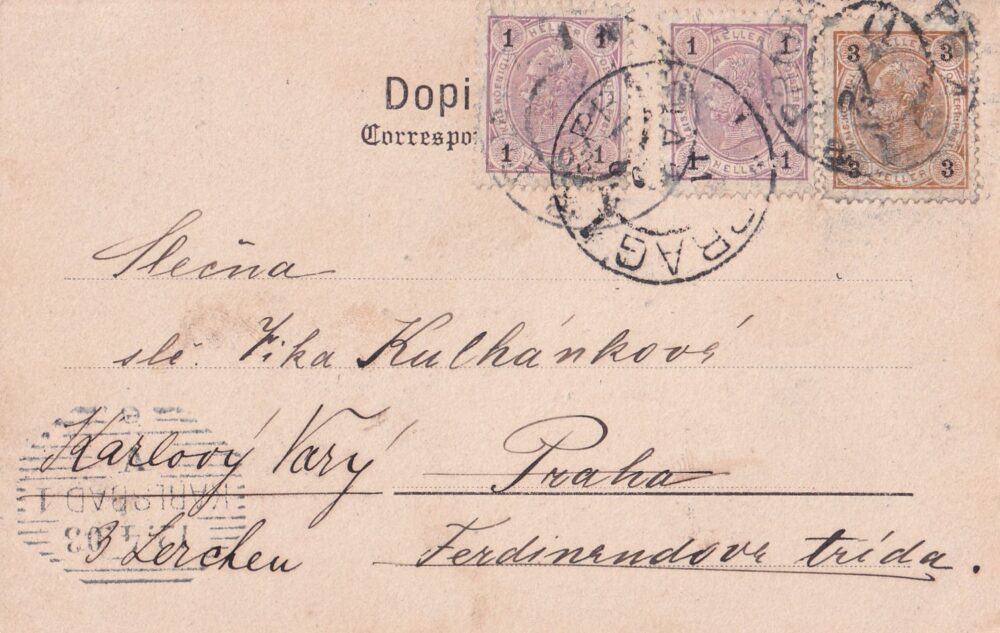 1 HELLER 1 1 HELLER 1 3 HELLER 3
1 1 1 HELLER 1 3 HELLER 3
Dopi
Correspo
PRAG
Slečna
slč. Fika Kulhánková
Karlový Varý Praha
KARLSBAD 1
03
3 Lerchen Ferdinandova třída.